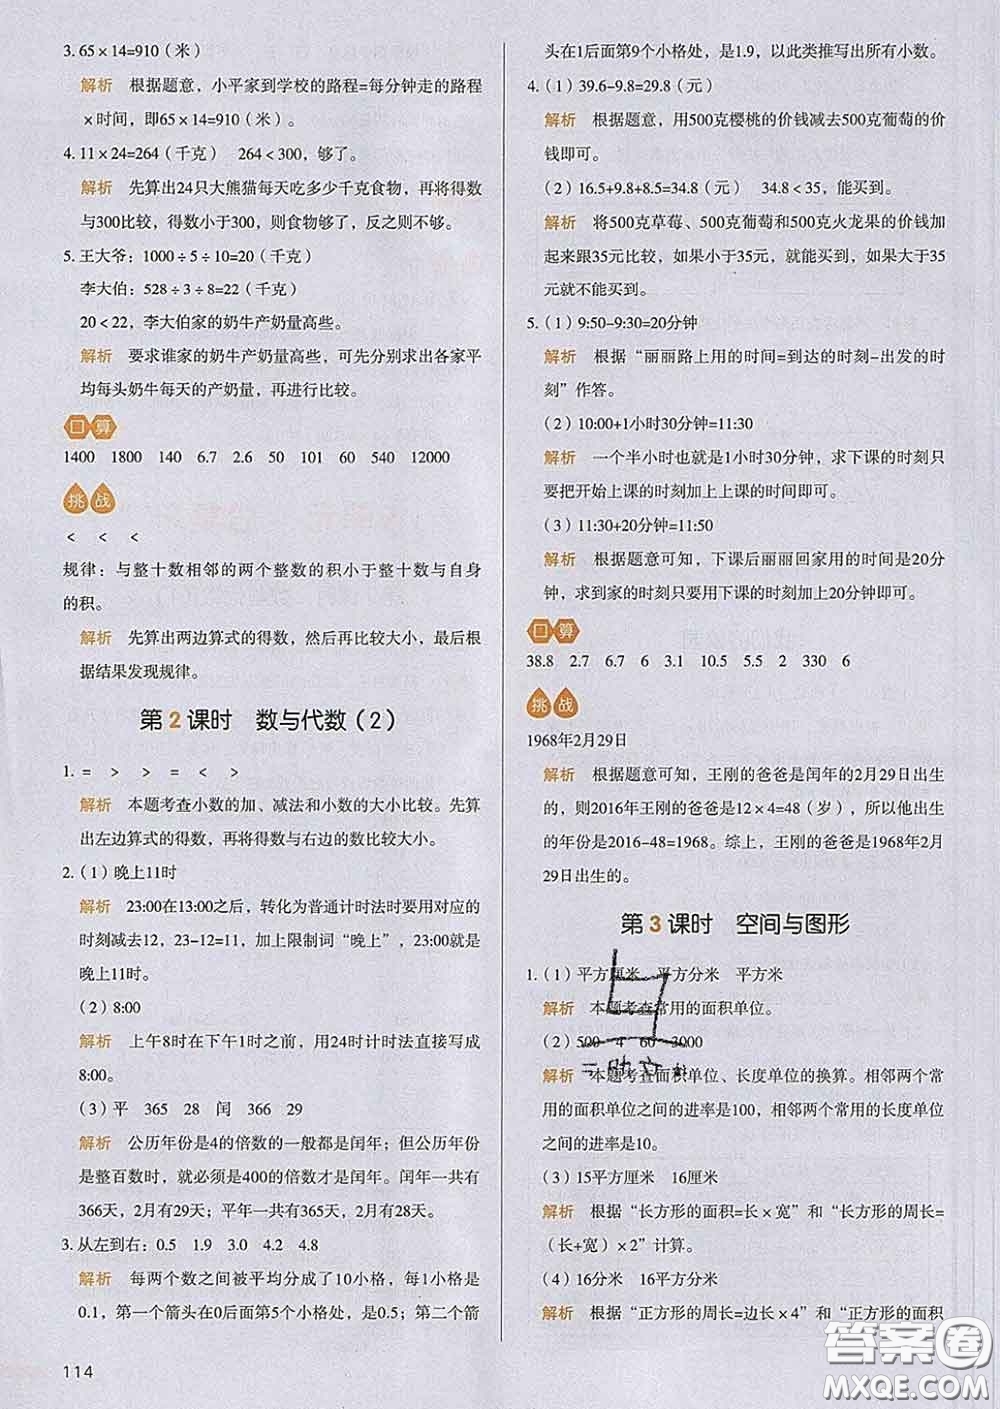 3. 65×14=910（米）
解析 根据题意，小平家到学校的路程=每分钟走的路程
×时间，即65×14=910（米）。
4. 11×24=264（千克） 264＜300，够了。
解析 先算出24只大熊猫每天吃多少千克食物，再将得数
与300比较，得数小于300，则食物够了，反之则不够。
5. 王大爷：1000÷5÷10=20（千克）
李大伯：528÷3÷8=22（千克）
20＜22，李大伯家的奶牛产奶量高些。
解析 要求谁家的奶牛产奶量高些，可先分别求出各家平
均每头奶牛每天的产奶量，再进行比较。
口算
1400 1800 140 6.7 2.6 50 101 60 540 12000
挑战
＜ ＜ ＜
规律：与整十数相邻的两个整数的积小于整十数与自身
的积。
解析 先算出两边算式的得数，然后再比较大小，最后根
据结果发现规律。
第2课时 数与代数（2）
1. = ＞ ＞ = ＜ ＞
解析 本题考查小数的加、减法和小数的大小比较。先算
出左边算式的得数，再将得数与右边的数比较大小。
2.（1）晚上11时
解析 23:00在13:00之后，转化为普通计时法时要用对应的
时刻减去12，23-12=11，加上限制词“晚上”，23:00就是
晚上11时。
（2）8:00
解析 上午8时在下午1时之前，用24时计时法直接写成
8:00。
（3）平 365 28 闰 366 29
解析 公历年份是4的倍数的一般都是闰年；但公历年份
是整百数时，就必须是400的倍数才是闰年。闰年一共有
366天，2月有29天；平年一共有365天，2月有28天。
3. 从左到右：0.5 1.9 3.0 4.2 4.8
解析 每两个数之间被平均分成了10小格，每小格是
0.1，第一个箭头在0后面第5个小格处，是0.5；第二个箭
114
头在1后面第9个小格处，是1.9，以此类推写出所有小数。
4.（1）39.6-9.8=29.8（元）
解析 根据题意，用500克樱桃的价钱减去500克葡萄的价
钱即可。
（2）16.5+9.8+8.5=34.8（元） 34.8＜35，能买到。
解析 将500克草莓、500克葡萄和500克火龙果的价钱加
起来跟35元比较，如果小于35元，就能买到，如果大于35
元就不能买到。
5.（1）9:50-9:30=20分钟
解析 根据“丽丽路上用的时间=到达的时刻-出发的时
刻”作答。
（2）10:00+1小时30分钟=11:30
解析 一个半小时也就是1小时30分钟，求下课的时刻只
要把开始上课的时刻加上上课的时间即可。
（3）11:30+20分钟=11:50
解析 根据题意可知，下课后丽丽回家用的时间是20分
钟，求到家的时刻只要用下课的时刻加上20分钟即可。
口算
38.8 2.7 6.7 6 3.1 10.5 5.5 2 330 6
挑战
1968年2月29日
解析 根据题意可知，王刚的爸爸是闰年的2月29日出生
的，则2016年王刚的爸爸是12×4=48（岁），所以他出生
的年份是2016-48=1968。综上，王刚的爸爸是1968年2月
29日出生的。
第3课时 空间与图形
1.（1）平方厘米 平方分米 平方米
解析 本题考查常用的面积单位。
（2）500 4 60 3000
解析 本题考查面积单位、长度单位的换算。相邻两个常
用的面积单位之间的进率是100，相邻两个常用的长度单位
之间的进率是10。
（3）15平方厘米 16厘米
解析 根据“长方形的面积=长×宽”和“长方形的周长=
（长+宽）×2”计算。
（4）16分米 16平方分米
解析 根据“正方形的周长=边长×4”和“正方形的面积
答案圈
MXQE.COM